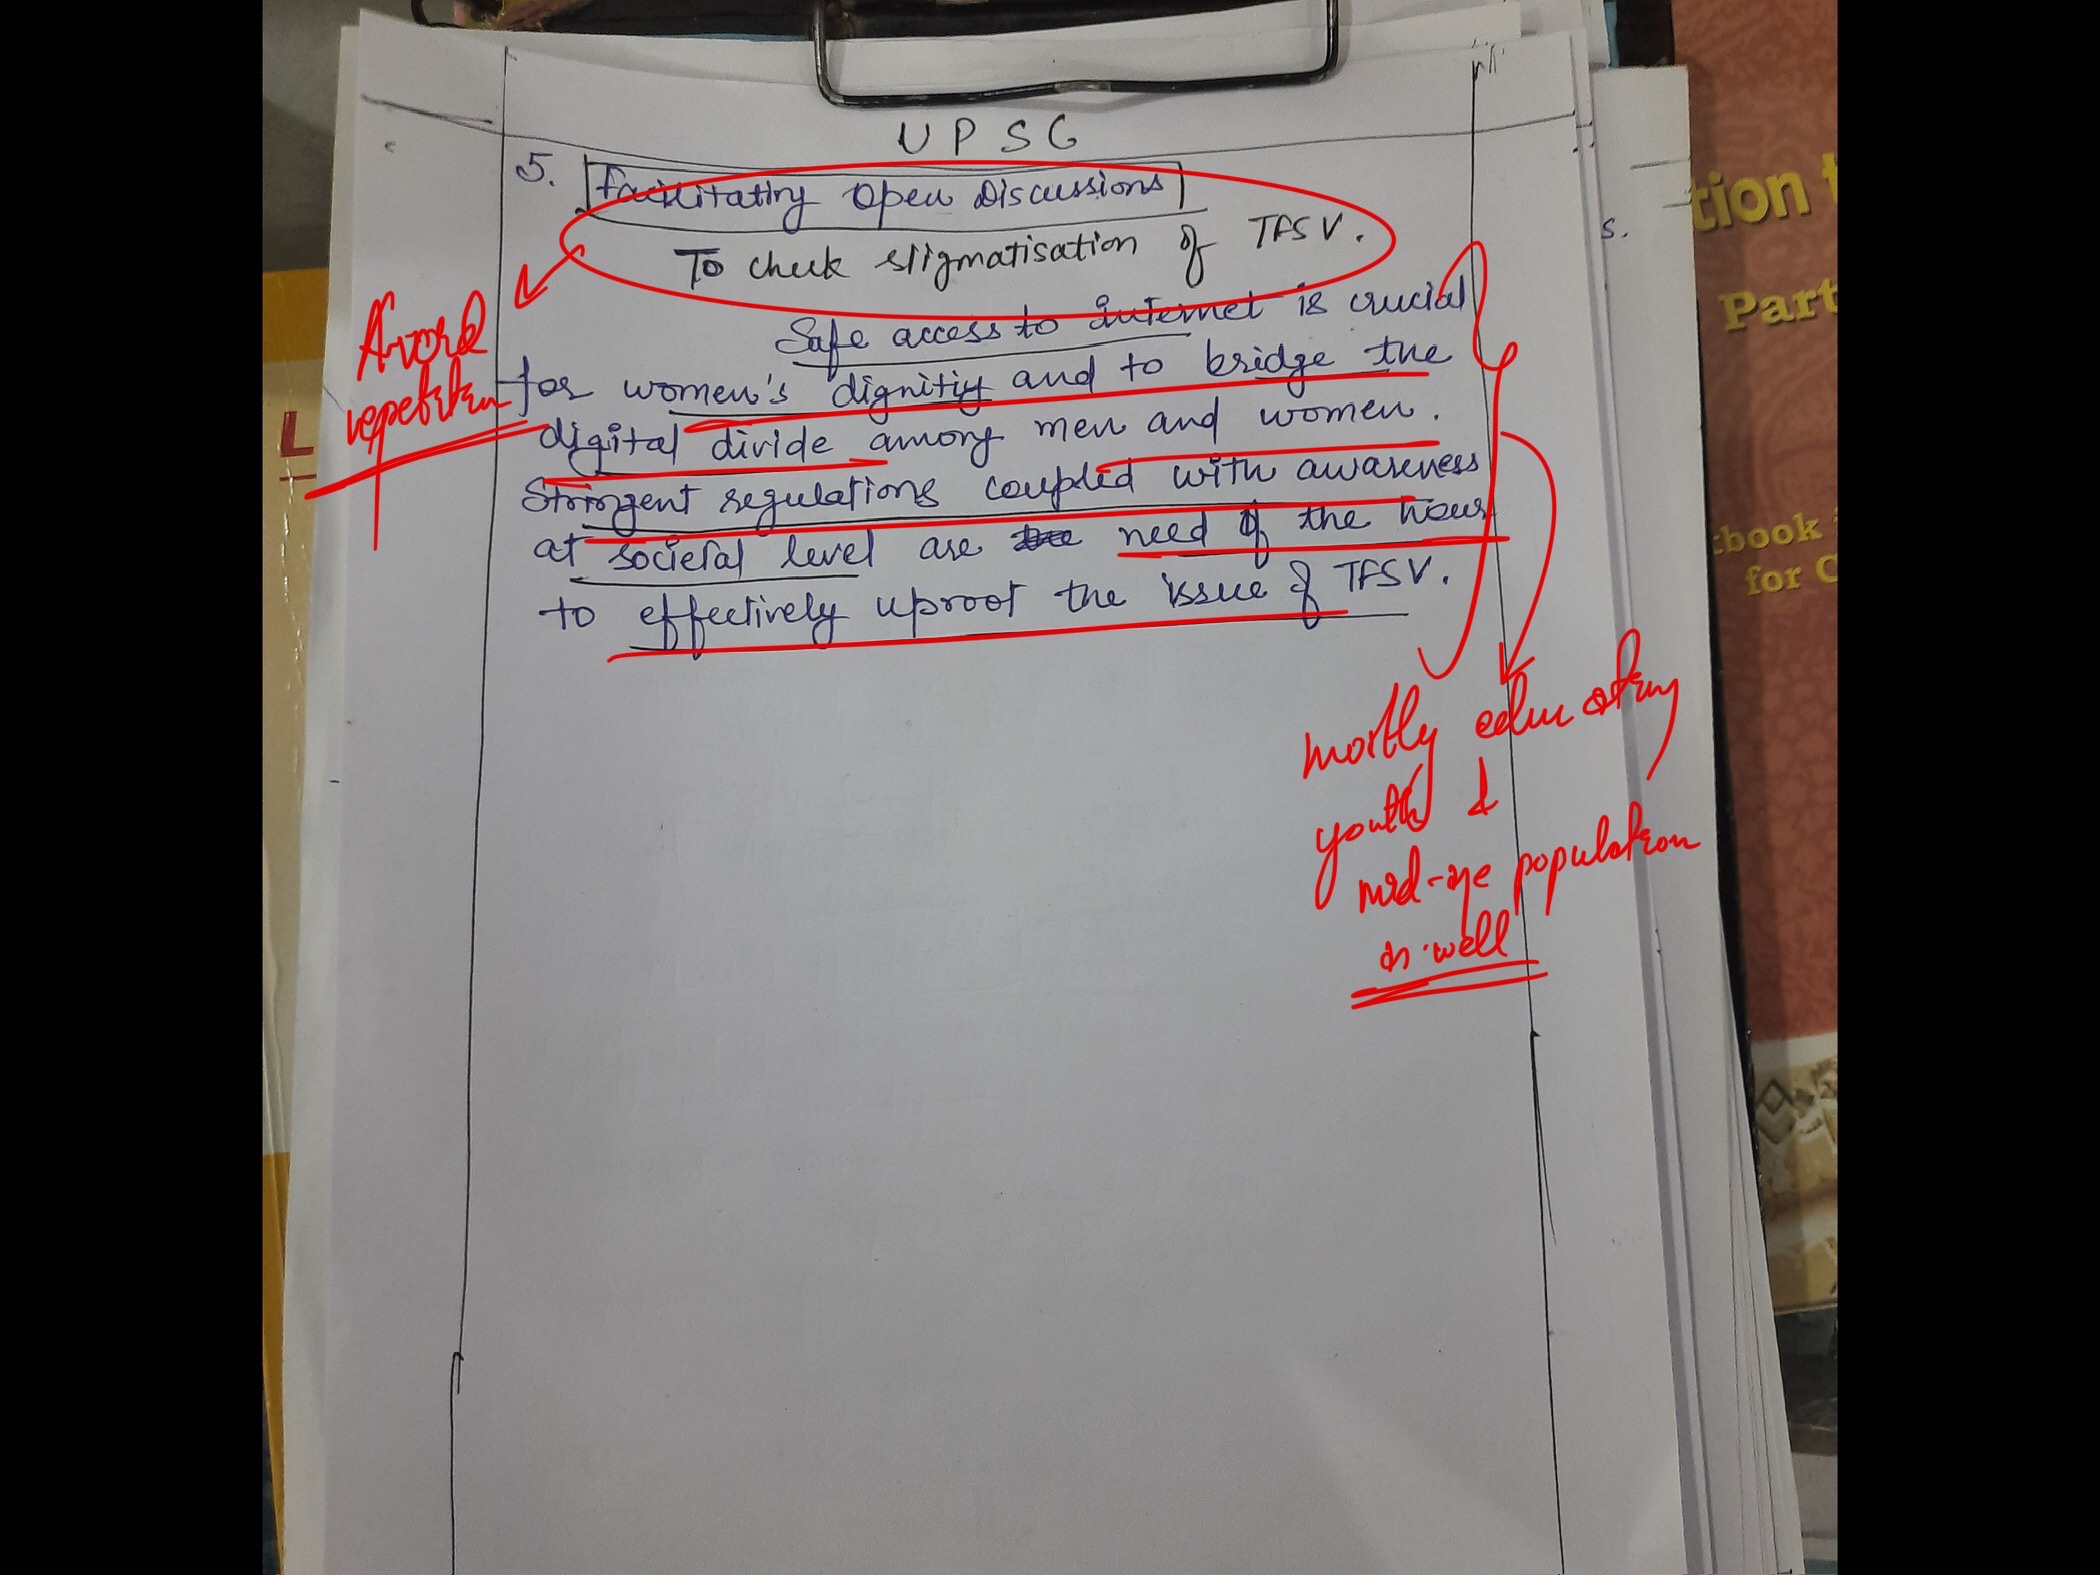 UPSC
5. Facilitating Open Discussions
To check stigmatisation of TFSV.
Safe access to internet is crucial
for women's dignitiy and to bridge the
digital divide among men and women.
Stringent regulations coupled with awareness
at societal level are need of the hour
to effectively uproot the issue of TFSV.
Avoid
repetition
mostly educating
youth &
mid-age population
as well
L
s.
tion
Part
book
for C